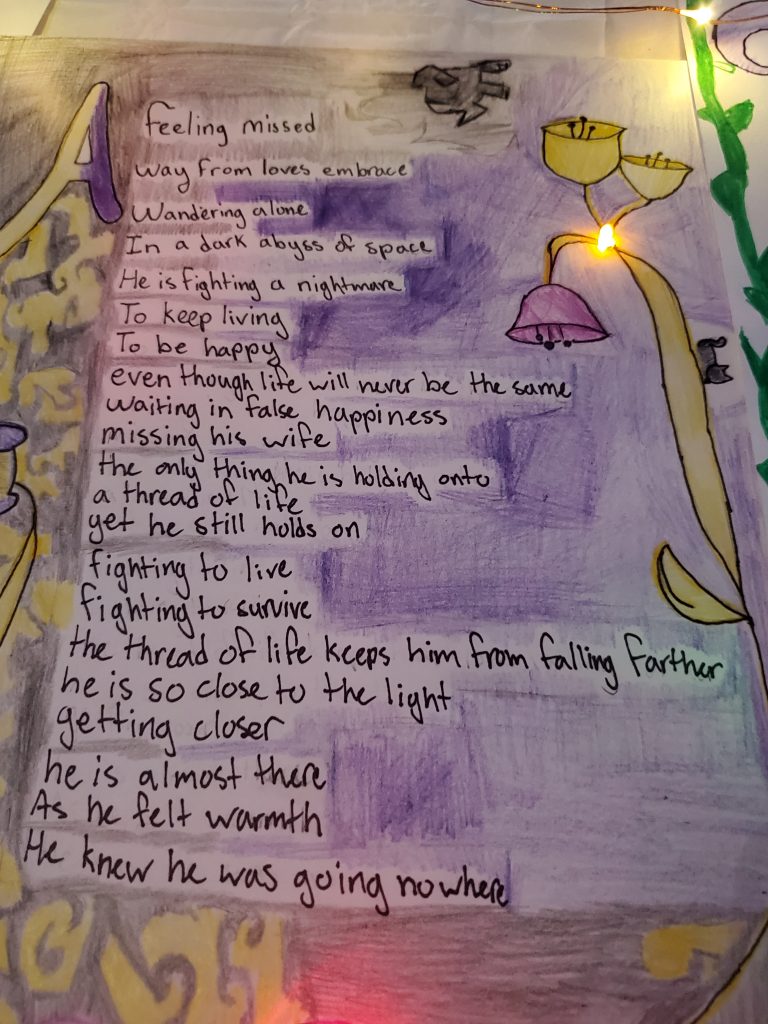 A feeling missed
way from loves embrace
Wandering alone
In a dark abyss of space
He is fighting a nightmare
To keep living
To be happy
even though life will never be the same
waiting in false happiness
missing his wife
the only thing he is holding onto
a thread of life
yet he still holds on
fighting to live
fighting to survive
the thread of life keeps him from falling farther
he is so close to the light
getting closer
he is almost there
As he felt warmth
He knew he was going nowhere